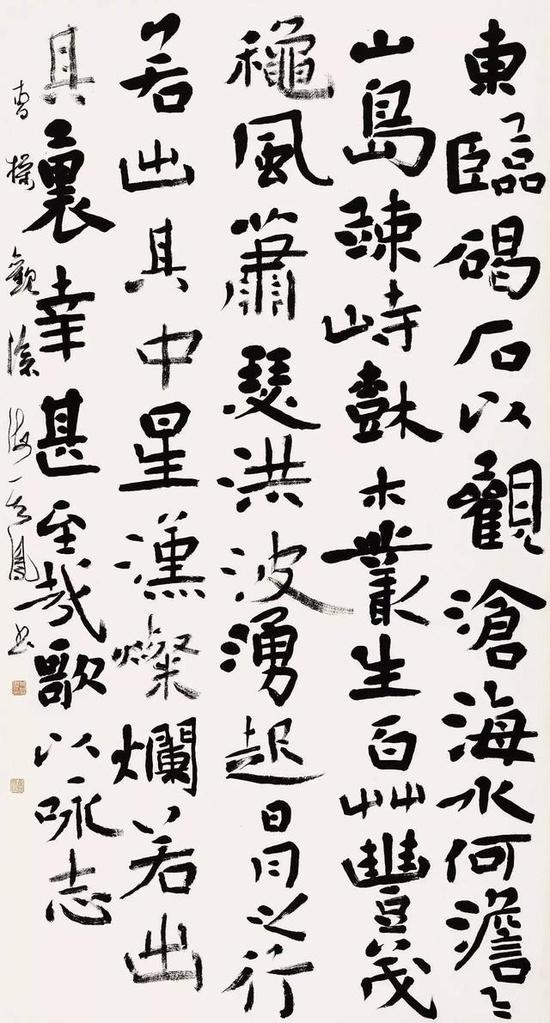 東臨碣石以觀滄海水何澹〻
山島竦峙樹木叢生百艸豐茂
穐風蕭瑟洪波湧起日月之行
若出其中星漢燦爛若出
其裏幸甚至哉歌以咏志
曹操觀滄海